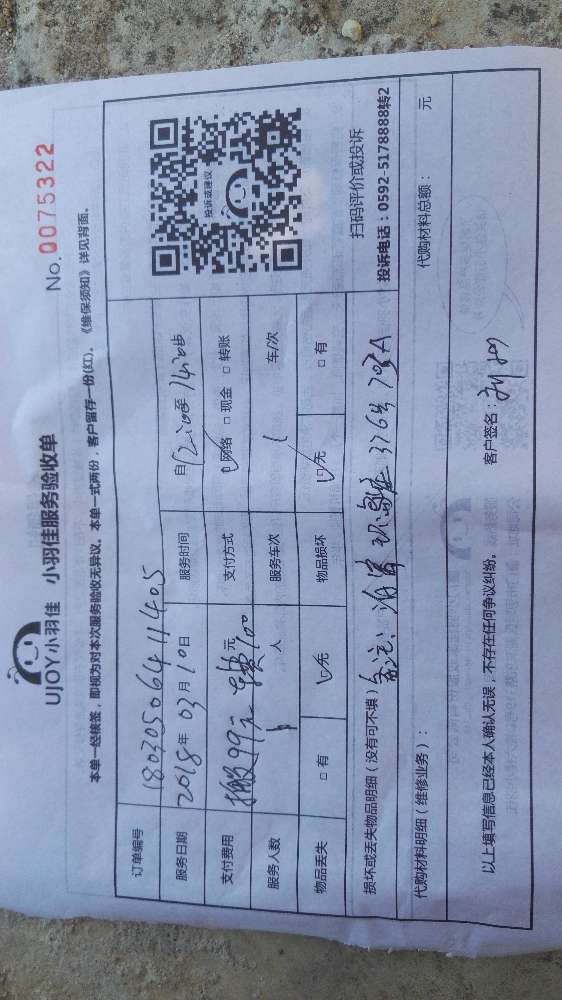 UJOY小羽佳 小羽佳服务验收单
No.0075322
本单一经核签，即视为对本次服务验收无异议。本单一式两份，客户留存一份(红)。《维保须知》详见背面。
订单编号 18030506411405
服务日期 2018年03月10日 服务时间 自12:00至14:00
支付费用 搬服99元 车费100元 支付方式 网络 □现金 □转账
服务人数 人 服务车次 1 车/次
物品丢失 □有 无 物品损坏 无 □有
投诉或建议
扫码评价或投诉
投诉电话：0592-5178888转2
损坏或丢失物品明细（没有可不填） 备注：
代购材料明细（维修业务）： 代购材料总额： 元
以上填写信息已经本人确认无误，不存在任何争议纠纷。 客户签名：